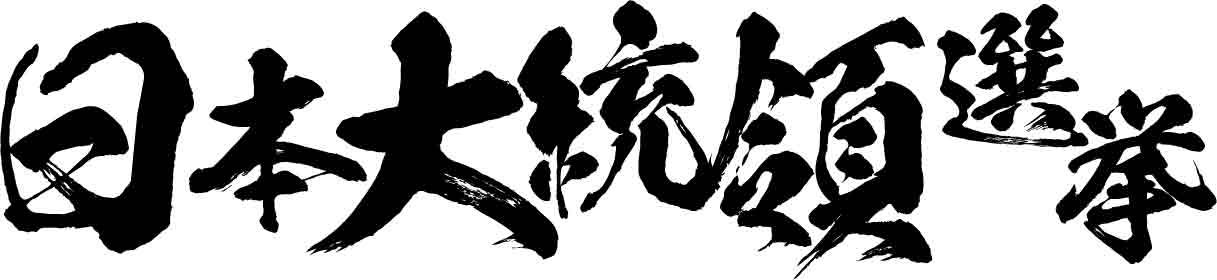 日本大統領選挙